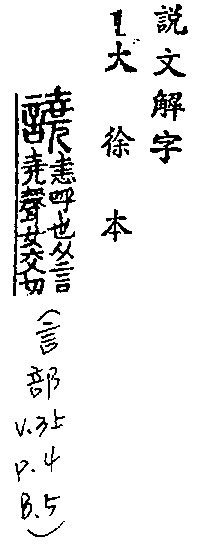 說文解字
大徐本
譊 恚呼也从言
堯聲女交切
(言部
V.3上
P.4
B.5)